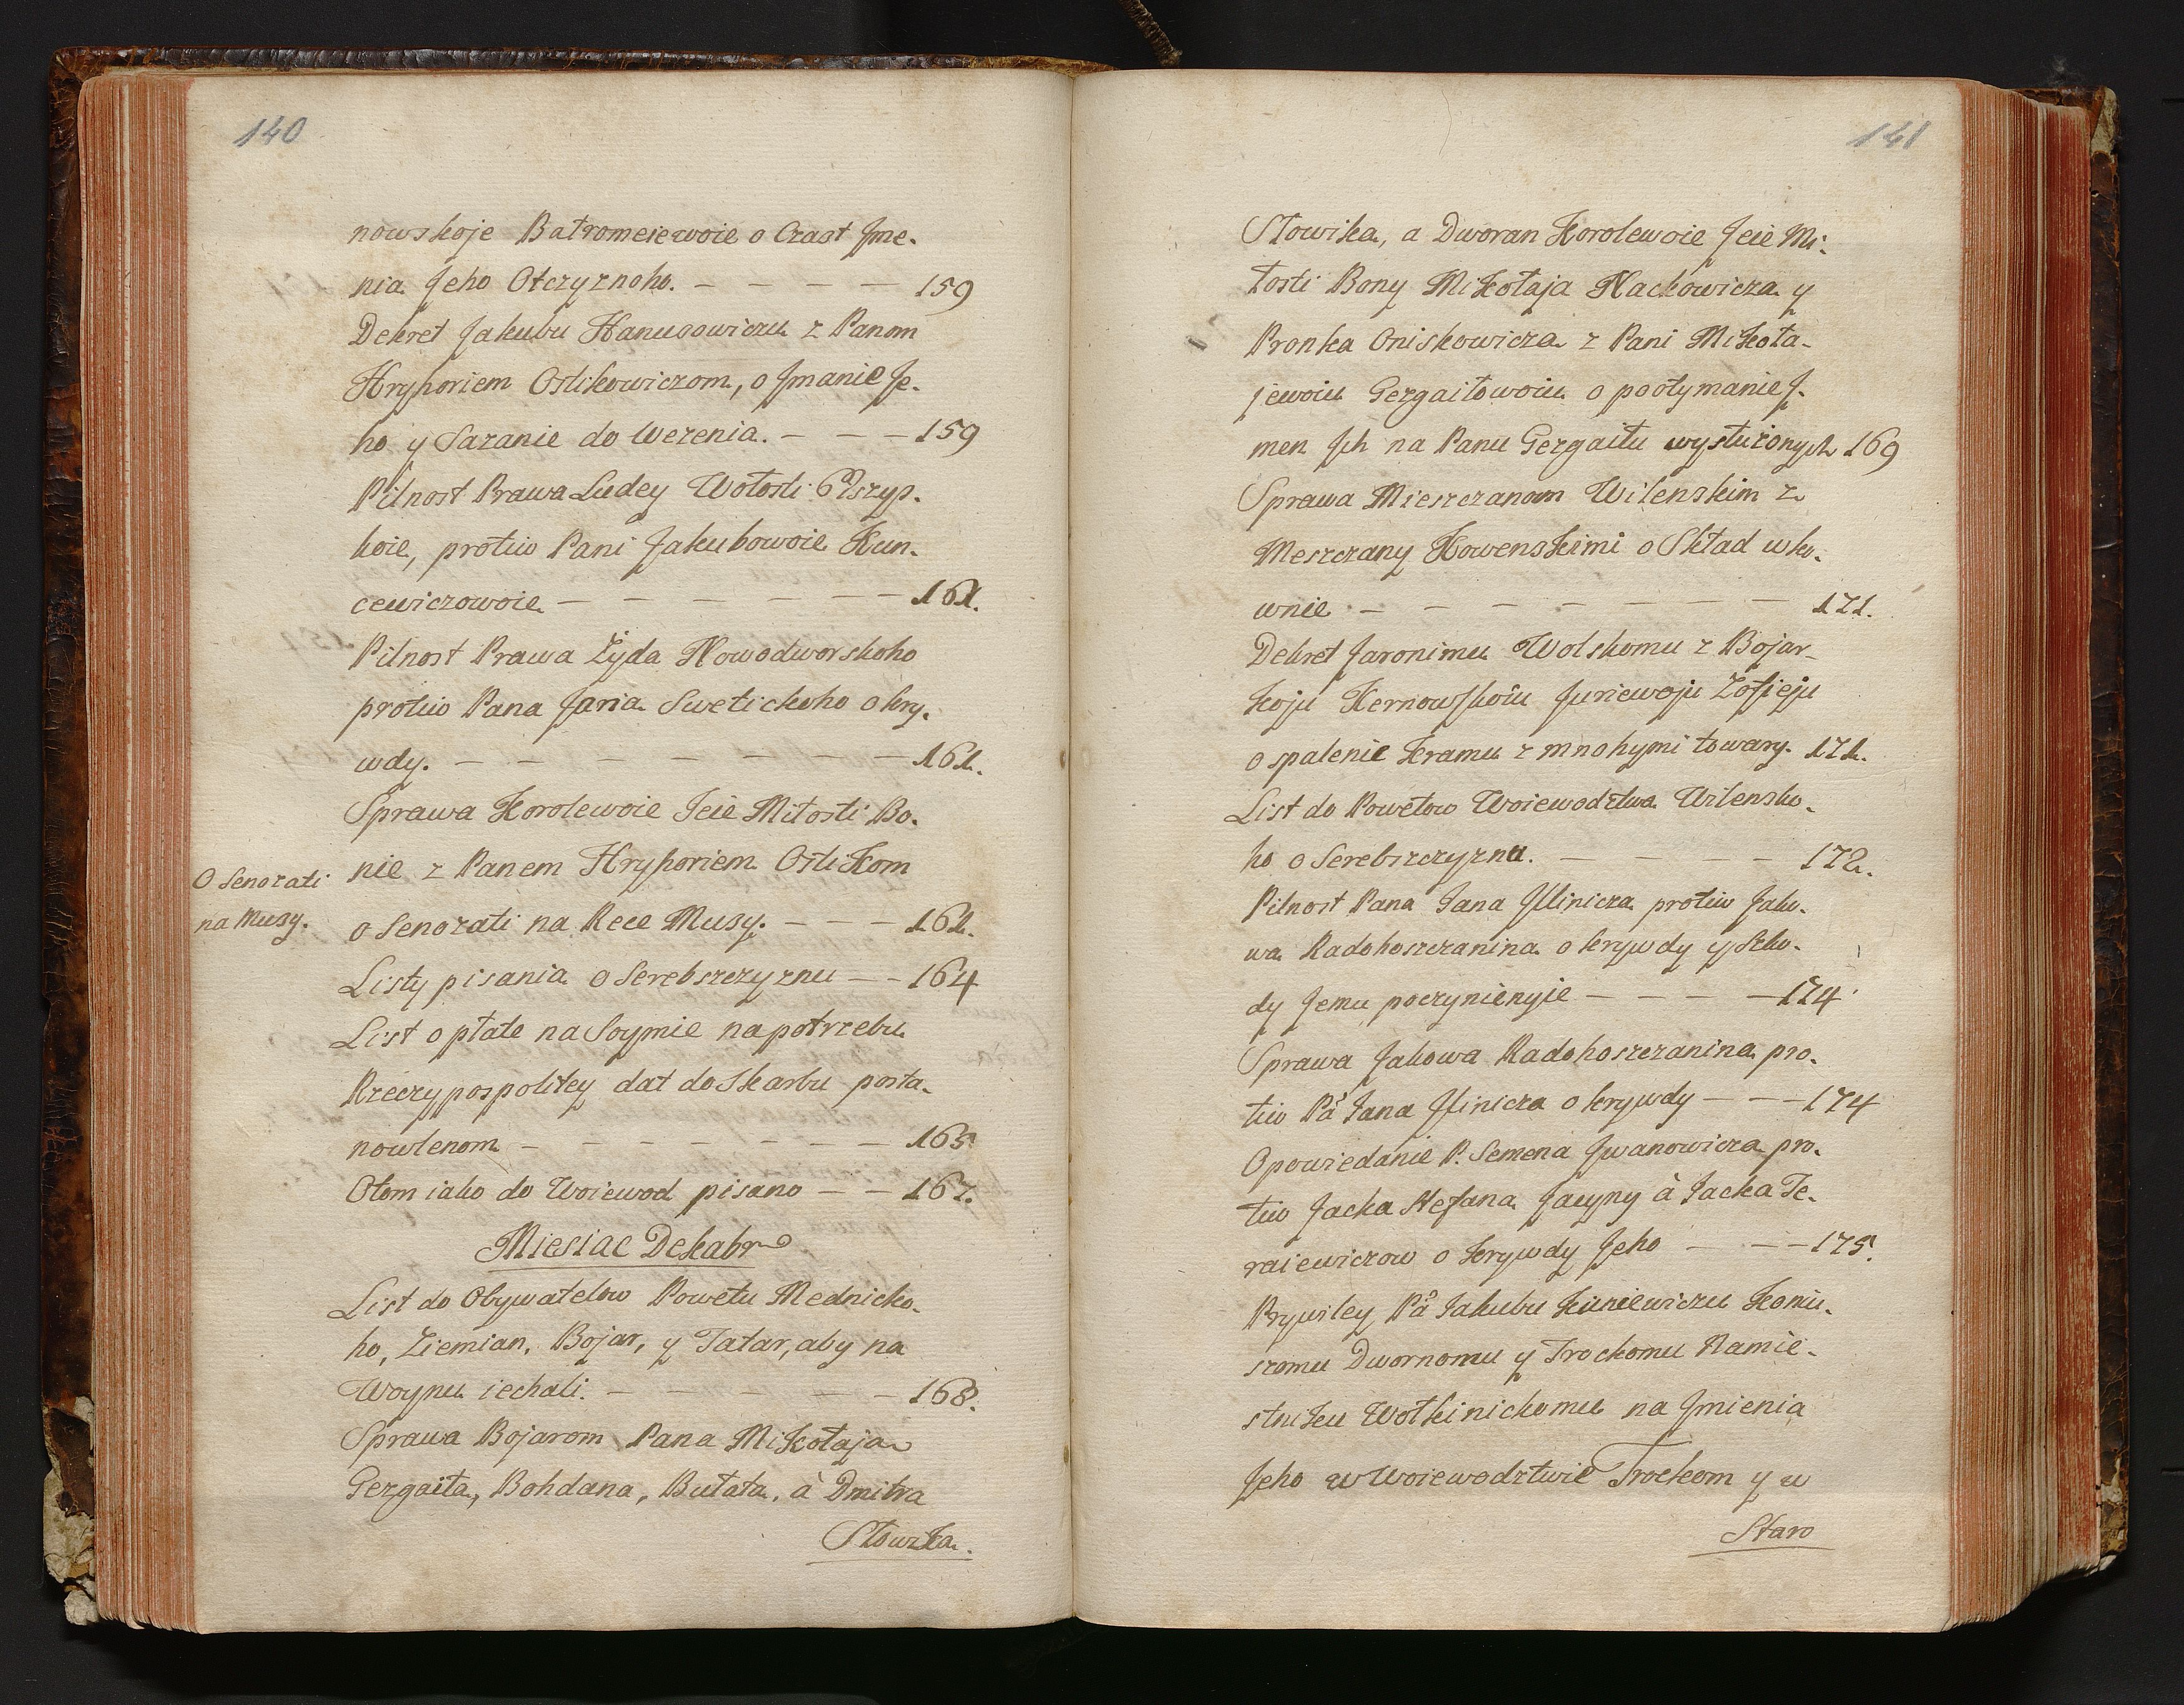 140
nowskoje Batromeiewoie o Czast Jme-
nia Jeho Otczyznoho. — — — — 159
Dekret Jakubu Hanusowiczu z Panom
Hryhoriem Ostikowiczom, o Jmanie Je-
ho y Sazanie do Wezenia. — — — 159
Pilnost Prawa Ludey Wołosti
koie, protiw Pani Jakubowoie Kun-
cewiczowoie — — — — — — 161.
Pilnost Prawa Żyda Nowodworskoho
protiw Pana Jana Swetickoho o kry-
wdy. — — — — — — — 161.
Sprawa Korolewoie Jeie Miłosti Bo-
nie z Panem Hryhoriem Ostikom
O Senozati
na Musy.
o Senozati na Rece Musy. — — — 161.
Listy pisania o Serebszczyznu — — 164
List o płate na Soymie na potrzebu
Rzeczypospolitey dat do Skarbu posta-
nowlenom — — — — — — — 165
Otom iako do Woiewod pisano — — 167.
Miesiac Dekabr
List do Obywatelow Powetu Mednicko-
ho, Ziemian, Bojar, y Tatar, aby na
Woynu iechali. — — — — — 168.
Sprawa Bojarom Pana Mikołaja
Gezgaiła, Bohdana, Bułata, à Dmitra
Słowika.
141
Słowika, a Dworan Korolewoie Jeie Mi-
łosti Bony Mikołaja Nackowicza y
Pronka Oniskowicza z Pani Mikoła-
jewoiu Gezgaiłowoiu o pootymanie J-
men Jch na Panu Gezgaiłu wysłużonych 169
Sprawa Mieszczanom Wilenskim z
Meszczany Kowenskimi o Skład w Ko-
wnie — — — — — — — 171.
Dekret Jaronimu Wolskomu z Bojar-
koju Kernowskoiu Juriewoju Zofieju
o spalenie Kramu z mnohymi towary. 171.
List do Powetow Woiewodztwa Wilensko-
ho o Serebszczyznu. — — — — 172.
Pilnost Pana Jana Jlinicza protiw Jako-
wa Radohoszczanina o krywdy y Szko-
dy Jemu poczynienyie — — — — 174
Sprawa Jakowa Radohoszczanina pro-
tiw Pa Jana Jlinicza o krywdy — — — 174
Opowiedanie P. Semena Jwanowicza pro-
tiw Jacka Stefana Jacyny à Jacka Te-
raiewiczow o krywdy Jeho — — — 175.
Prywiley Pa Jakubu Kuniewiczu Koniu-
szomu Dwornomu y Trockomu Namie-
stniku Wołkinickomu na Jmienia
Jeho w Woiewodztwie Trockom y w
Staro